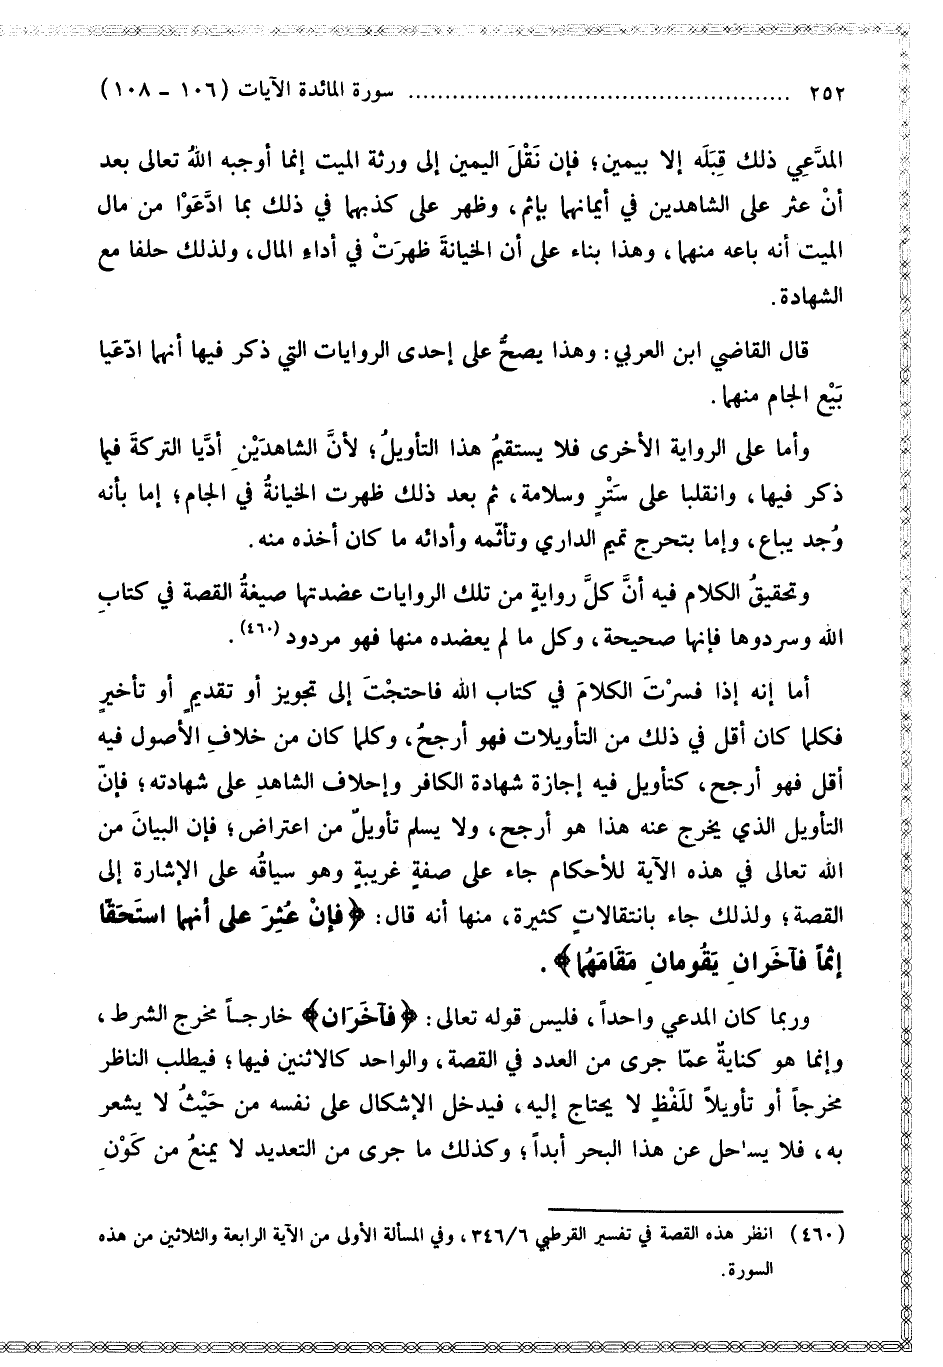 ٢٥٢ .................................................... سورة المائدة الآيات (١٠٦ - ١٠٨)
المدَّعِي ذلك قِبَلَه إلا بيمين؛ فإن نَقْلَ اليمين إلى ورثة الميت إنما أوجبه اللهُ تعالى بعد
أنْ عثر على الشاهدين في أيمانهما بإثم، وظهر على كذبهما في ذلك بما ادَّعَوْا من مال
الميت أنه باعه منهما، وهذا بناء على أن الخيانةَ ظهرَتْ في أداءِ المال، ولذلك حلفا مع
الشهادة.
قال القاضي ابن العربي: وهذا يصحُّ على إحدى الروايات التي ذكر فيها أنهما ادّعَيا
بَيْع الجام منهما.
وأما على الرواية الأخرى فلا يستقيمُ هذا التأويلُ؛ لأنَّ الشاهدَيْنِ أدَّيا التركةَ فيما
ذكر فيها، وانقلبا على سَتْرٍ وسلامة، ثم بعد ذلك ظهرت الخيانةُ في الجام؛ إما بأنه
وُجد يباع، وإما بتحرج تميم الداري وتأثّمه وأدائه ما كان أخذه منه.
وتحقيقُ الكلام فيه أنَّ كلَّ روايةٍ من تلك الروايات عضدتها صيغةُ القصة في كتابِ
الله وسردوها فإنها صحيحة، وكل ما لم يعضده منها فهو مردود (٤٦٠).
أما إنه إذا فسرْتَ الكلامَ في كتاب الله فاحتجْتَ إلى تجويز أو تقديمٍ أو تأخيرٍ
فكلما كان أقل في ذلك من التأويلات فهو أرجحُ، وكلما كان من خلافِ الأصول فيه
أقل فهو أرجح، كتأويل فيه إجازة شهادة الكافر وإحلاف الشاهدِ على شهادته؛ فإنّ
التأويل الذي يخرج عنه هذا هو أرجح، ولا يسلم تأويلٌ من اعتراض؛ فإن البيانَ من
الله تعالى في هذه الآية للأحكام جاء على صفةٍ غريبةٍ وهو سياقُه على الإشارة إلى
القصة؛ ولذلك جاء بانتقالاتٍ كثيرة، منها أنه قال: ﴿فإنْ عُثِرَ على أنهما استَحَقّا
إثماً فآخَرانِ يَقُومانِ مَقَامَهُما﴾.
وربما كان المدعي واحداً، فليس قوله تعالى: ﴿فآخَرَان﴾ خارجاً مخرج الشرط،
وإنما هو كنايةٌ عمّا جرى من العدد في القصة، والواحد كالاثنين فيها؛ فيطلب الناظر
مخرجاً أو تأويلاً للَفْظٍ لا يحتاج إليه، فيدخل الإشكال على نفسه من حَيْثُ لا يشعر
به، فلا يساحل عن هذا البحر أبداً؛ وكذلك ما جرى من التعديد لا يمنعُ من كَوْنِ
(٤٦٠) انظر هذه القصة في تفسير القرطبي ٣٤٦/٦، وفي المسألة الأولى من الآية الرابعة والثلاثين من هذه
السورة.